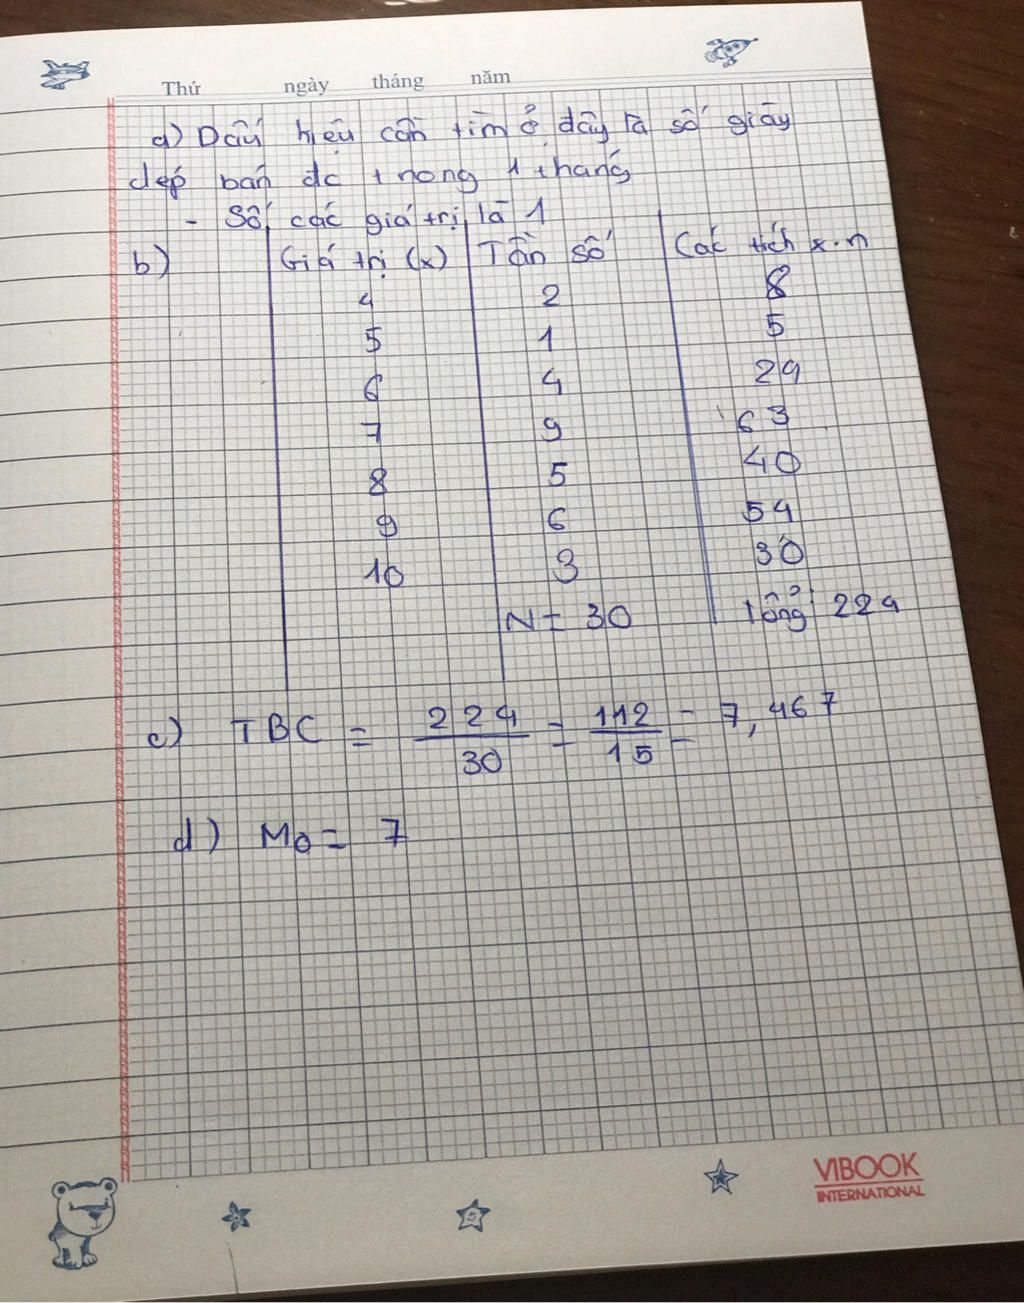 Thứ ngày tháng năm
a) Dấu hiệu cần tìm ở đây là số giày
dép bán đc trong 1 tháng
- Số các giá trị là 1
b) Giá trị (x) Tần số Các tích x.n
4 2 8
5 1 5
6 4 24
7 9 63
8 5 40
9 6 54
10 3 30
N = 30 Tổng: 224
c) TBC = 224/30 = 112/15 = 7,467
d) M0 = 7
VIBOOK
INTERNATIONAL